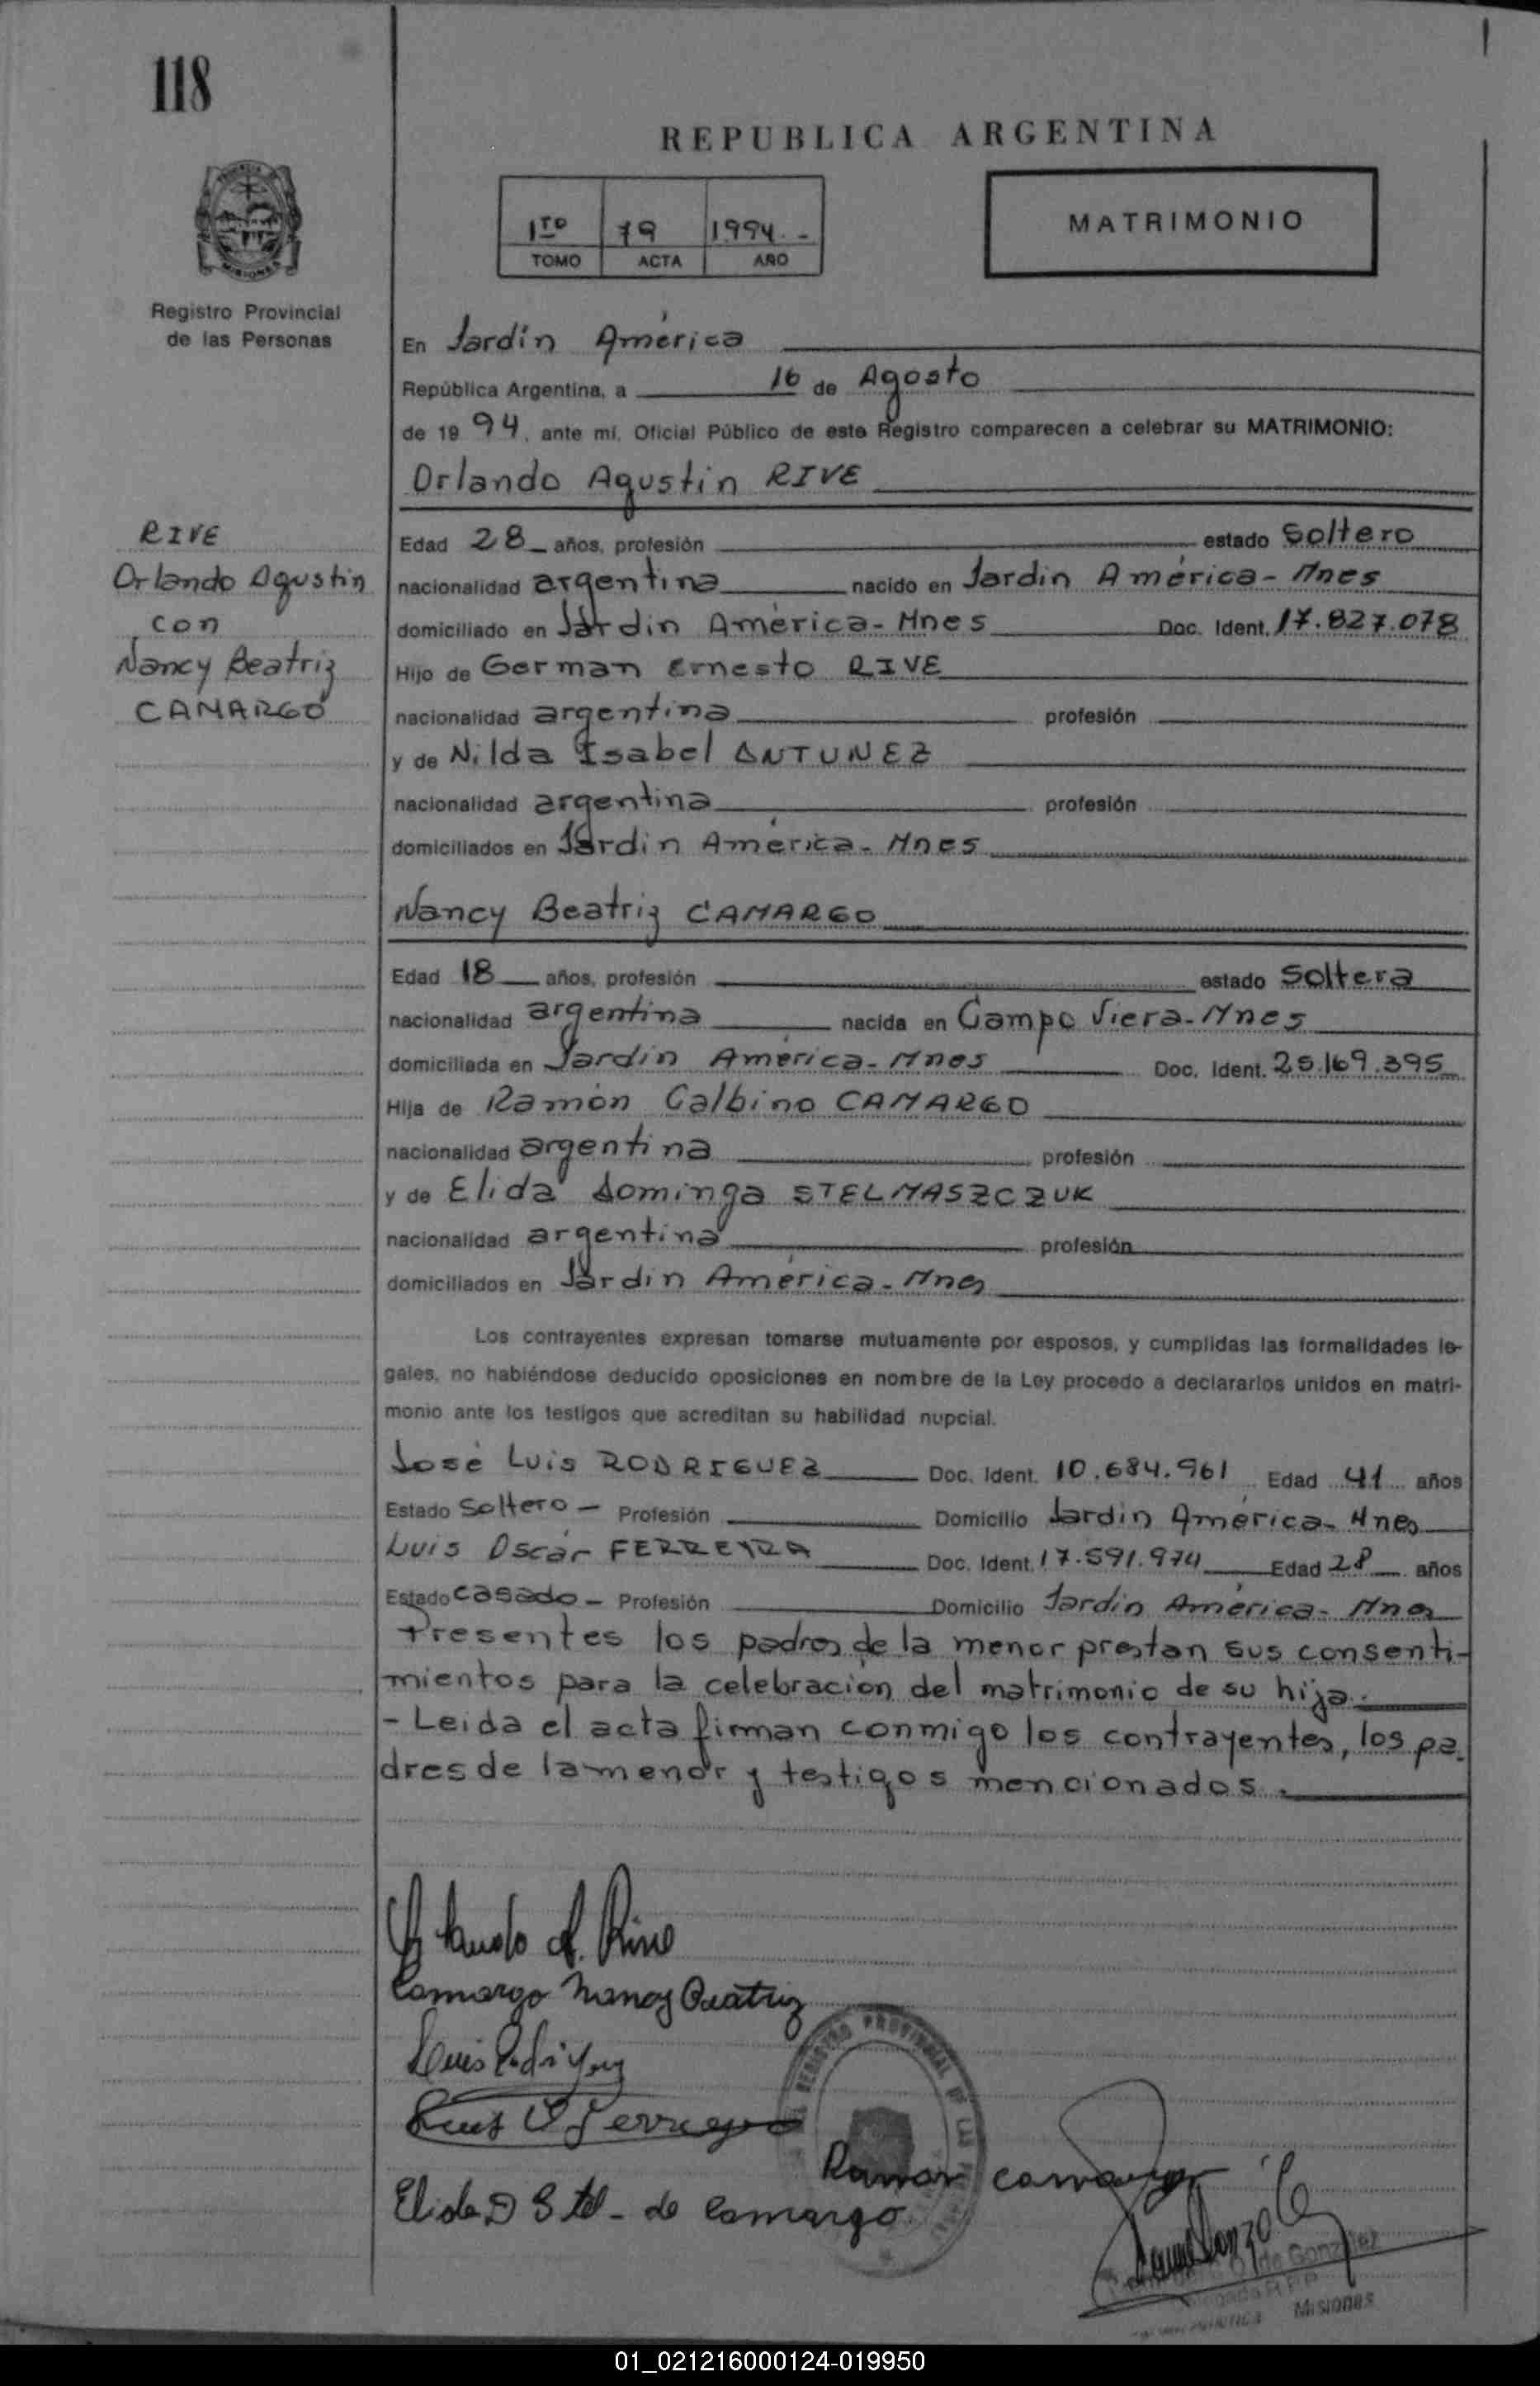 118
REPUBLICA ARGENTINA
1ro 79 1994.-
TOMO ACTA AÑO
MATRIMONIO
MISIONES
Registro Provincial
de las Personas
En Jardín América
República Argentina, a 16 de Agosto
de 19 94, ante mí, Oficial Público de este Registro comparecen a celebrar su MATRIMONIO:
Orlando Agustin RIVE
RIVE
Orlando Agustin
con
Nancy Beatriz
CAMARGO
Edad 28 años, profesión estado Soltero
nacionalidad argentina nacido en Jardin América- Mnes
domiciliado en Jardin América- Mnes Doc. Ident. 17.827.078
Hijo de German Ernesto RIVE
nacionalidad argentina profesión
y de Nilda Isabel ANTUNEZ
nacionalidad argentina profesión
domiciliados en Jardin América- Mnes
Nancy Beatriz CAMARGO
Edad 18 años, profesión estado Soltera
nacionalidad argentina nacida en Campo Viera- Mnes
domiciliada en Jardin América- Mnes Doc. Ident. 25.169.395
Hija de Ramón Galbino CAMARGO
nacionalidad argentina profesión
y de Elida Dominga STELMASZCZUK
nacionalidad argentina profesión
domiciliados en Jardin América- Mnes
Los contrayentes expresan tomarse mutuamente por esposos, y cumplidas las formalidades le-
gales, no habiéndose deducido oposiciones en nombre de la Ley procedo a declararlos unidos en matri-
monio ante los testigos que acreditan su habilidad nupcial.
José Luis RODRIGUEZ Doc. Ident. 10.684.961 Edad 41 años
Estado Soltero - Profesión Domicilio Jardin América- Mnes
Luis Oscar FERREYRA Doc. Ident. 17.591.974 Edad 28 años
Estado casado - Profesión Domicilio Jardin América- Mnes
Presentes los padres de la menor prestan sus consenti-
mientos para la celebración del matrimonio de su hija.
- Leida el acta firman conmigo los contrayentes, los pa-
dres de la menor y testigos mencionados.
Orlando A. Rive
Camargo Nancy Beatriz
Luis Rodriguez
Luis O Ferreyra
REGISTRO PROVINCIAL DE LAS
Ramon Camargo
Elida D Stel- de Camargo
de Gonzalez
Delegada R.P.P.
Misiones
01_021216000124-019950